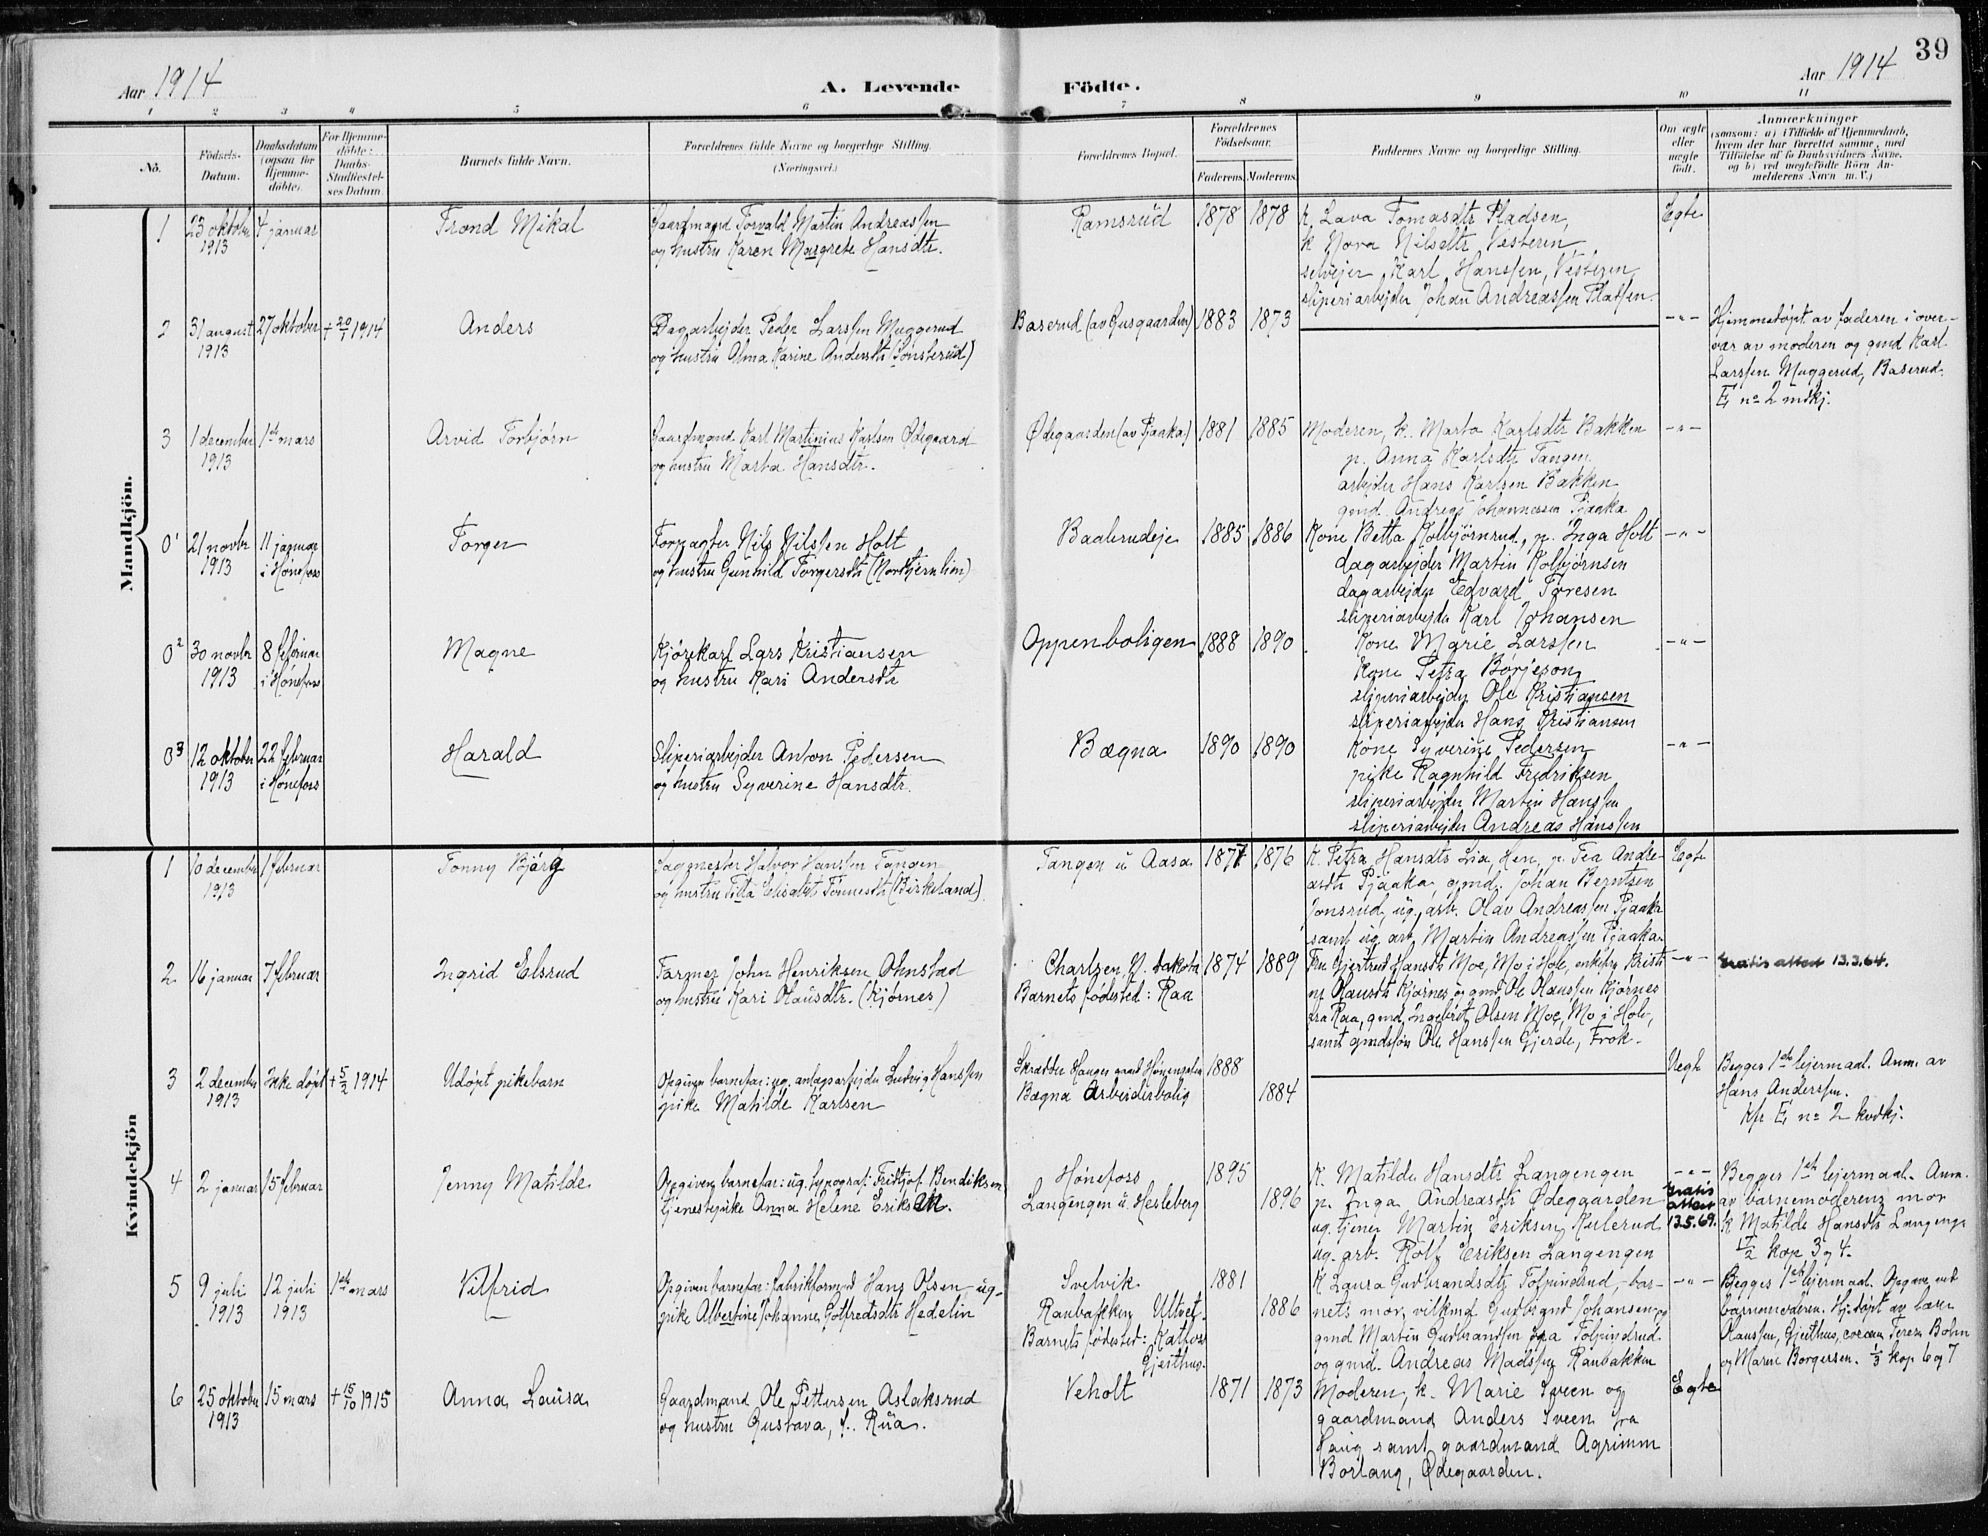 39
Aar 1914
A. Levende Födte.
Aar 1914
1 2 3 4 5 6 7 8 9 10 11
No.
Födsels-
Datum.
Daabsdatum
(ogsaa for
Hjemme-
döbte).
For Hjemme-
döbte:
Daabs-
Stadfæstel-
ses Datum
Barnets fulde Navn.
Forældrenes fulde Navne og borgerlige Stilling.
(Næringsvei.)
Forældrenes Bopæl.
Forældrenes
Födselsaar.
Faderens. Moderens.
Faddernes Navne og borgerlige Stilling.
Om ægte
eller
uægte
födt.
Anmærkninger
(saasom: a) i Tilfælde af Hjemmedaab,
hvem der har forrettet samme, med
Tilföielse af to Daabsvidners Navne,
og b) ved uægtefödte Börn An-
melderens Navn m. V.)
Mandkjön.
1
23 oktober
1913
4 januar
Trond Mikal
Gaardmand Torvald Martin Andreassen
og hustru Karen Margrete Hansdtr.
Ramsrud
1878 1878
K. Lava Tomasdtr Pladsen,
k Nora Nilsdtr Vesteren,
selveier Karl Hanssen, Vesteren
sliperiarbejder Johan Andreassen Pladsen.
Egte
2
31 august
1913
27 oktober
+ 20/1 1914
Anders
Dagarbejder Peder Larssen Muggerud
og hustru Alma Karine Andersdtr (Tønsterud)
Baserud (av Gusgaarden)
1883 1873
-"-
Hjemmedøpt av faderen i over-
vær av moderen og gmd Karl
Larssen Muggerud, Baserud.
E, no 2 mdkj.
3
1 december
1913
1ste mars
Arvid Torbjørn
Gaardmand Karl Martinius Karlsen Ødegaard
og hustru Marta Hansdtr.
Ødegaarden (av Pjaaka)
1881 1885
Moderen, k. Marta Karlsdtr Bakken
p. Anna Karlsdtr Tangen
arbejder Hans Karlsen Bakken
gmd. Andreas Johannessen Pjaaka
-"-
0¹
21 novbr
1913
11 januar
i Hønefoss
Torger
Forpagter Nils Nilssen Holt
og hustru Gunhild Torgersdtr (Nordtjernlien)
Baalerudeje
1885 1886
Kone Betta Kolbjørnsrud, p. Inga Holt
dagarbejder Martin Kolbjørnsen
dagarbejder Edvard Toresen
sliperiarbejder Karl Johansen
-"-
0²
30 novbr
1913
8 februar
i Hønefoss
Magne
Kjørekarl Lars Kristiansen
og hustru Kari Andersdtr
Oppenboligen
1888 1890
Kone Marie Larssen
Kone Petra Børjeson
sliperiarbejder Ole Kristiansen
sliperiarbejder Hans Kristiansen
-"-
0³
12 oktober
1913
22 februar
i Hønefoss
Harald
Sliperiarbejder Anton Pedersen
og hustru Syverine Hansdtr.
Bægna
1890 1890
Kone Syverine Pedersen
pike Ragnhild Fredriksen
sliperiarbejder Martin Hanssen
sliperiarbejder Andreas Hanssen
-"-
Kvindekjön
1
10 december
1913
1 februar
Tonny Bjørg
Sagmester Halvor Hanssen Tangen
og hustru Tilta Elisabet Tønnesdtr (Birkeland)
Tangen u Aasa
1877 1876
K. Petra Hansdtr Lia, Hen, p. Tea Andre-
asdtr Pjaaka, gmd. Johan Berntsen
Jonsrud, ug. arb. Olav Andreassen Pjaaka
samt ug. arb. Martin Andreassen Pjaaka
Egte
2
16 januar
7 februar
Ingrid Elsrud
Farmer John Henriksen Ohnstad
og hustru Kari Olausdtr. (Kjørnes)
N. Dakota
Barnets fødested: Raa
1874 1889
Fru Gjertrud Hansdtr Moe, Mo i Hole, enkefru Kristi-
ne Olausdtr Kjørnes og gmd Ole Olaussen Kjørnes
fra Raa, gmd. Ingebret Olsen Moe, Mo i Hole,
samt gmdssøn Ole Hanssen Gjerde, Frok.
-"-
Gratis attest 13.3.64.
3
2 december
1913
Ikke døpt
+ 5/2 1914
Udøpt pikebarn
Opgiven barnefar: ug. anlægsarbejder Ludvig Hanssen
pike Matilde Karlsen
Bægna Arbeiderbolig
1888
1884
Uegte
Begges 1ste lejermaal. Anm. av
Hans Anderssen.
Kfr E, no 2 kvdkj.
4
2 januar
15 februar
Jenny Matilde
Opgiven barnefar: ug. typograf Fridtjof Bendiksen
tjenestepike Anna Helene Eriksen.
Hønefoss
Langengen u. Hesleberg
1895
1896
K. Matilde Hansdtr Langengen
p. Inga Andreasdtr Ødegaarden
ug. tjener Martin Eriksen Hulerud
ug. arb. Rolf Eriksen Langengen
-"-
Gratis
attest
13.5.69.
Begges 1ste lejermaal. Anm.
av barnemoderens mor
k Matilde Hansdtr Langengen
17/2 kap 3 og 4.
5
9 juli
1913
12 juli
1913
1ste mars
Vilfrid
Opgiven barnefar: fabrikformand Hans Olsen, ug.
pike Albertine Johanne Gotfredsdtr Hedelin
Svelvik
Raubakken Ultvet.
Barnets fødested: Katfos
Gjeithus.
1881
1886
K Laura Gudbrandsdtr Tolpindrud, bar-
nets mor, vilkmd Gudbrand Johansen og
gmd Martin Gudbrandsen fra Tolpindrud
og gmd. Andreas Madssen Raubakken
-"-
Begges 1ste lejermaal. Opgave ved
barnemoderen. Hj.døpt av lærer
Olaussen, Gjeithus, Tereza Bohn
og Maren Borgersen. 1/3 kap 6 og 7
6
25 oktober
1913
15 mars
+ 15/10 1915
Anna Louisa
Gaardmand Ole Pettersen Aslaksrud
og hustru Gustava, f. Rua.
Veholt
1871 1873
Moderen, k. Marie Sveen og
gaardmand Anders Sveen fra
Haug samt gaardmand Agrimm
Borlaug, Ødegaarden.
Egte